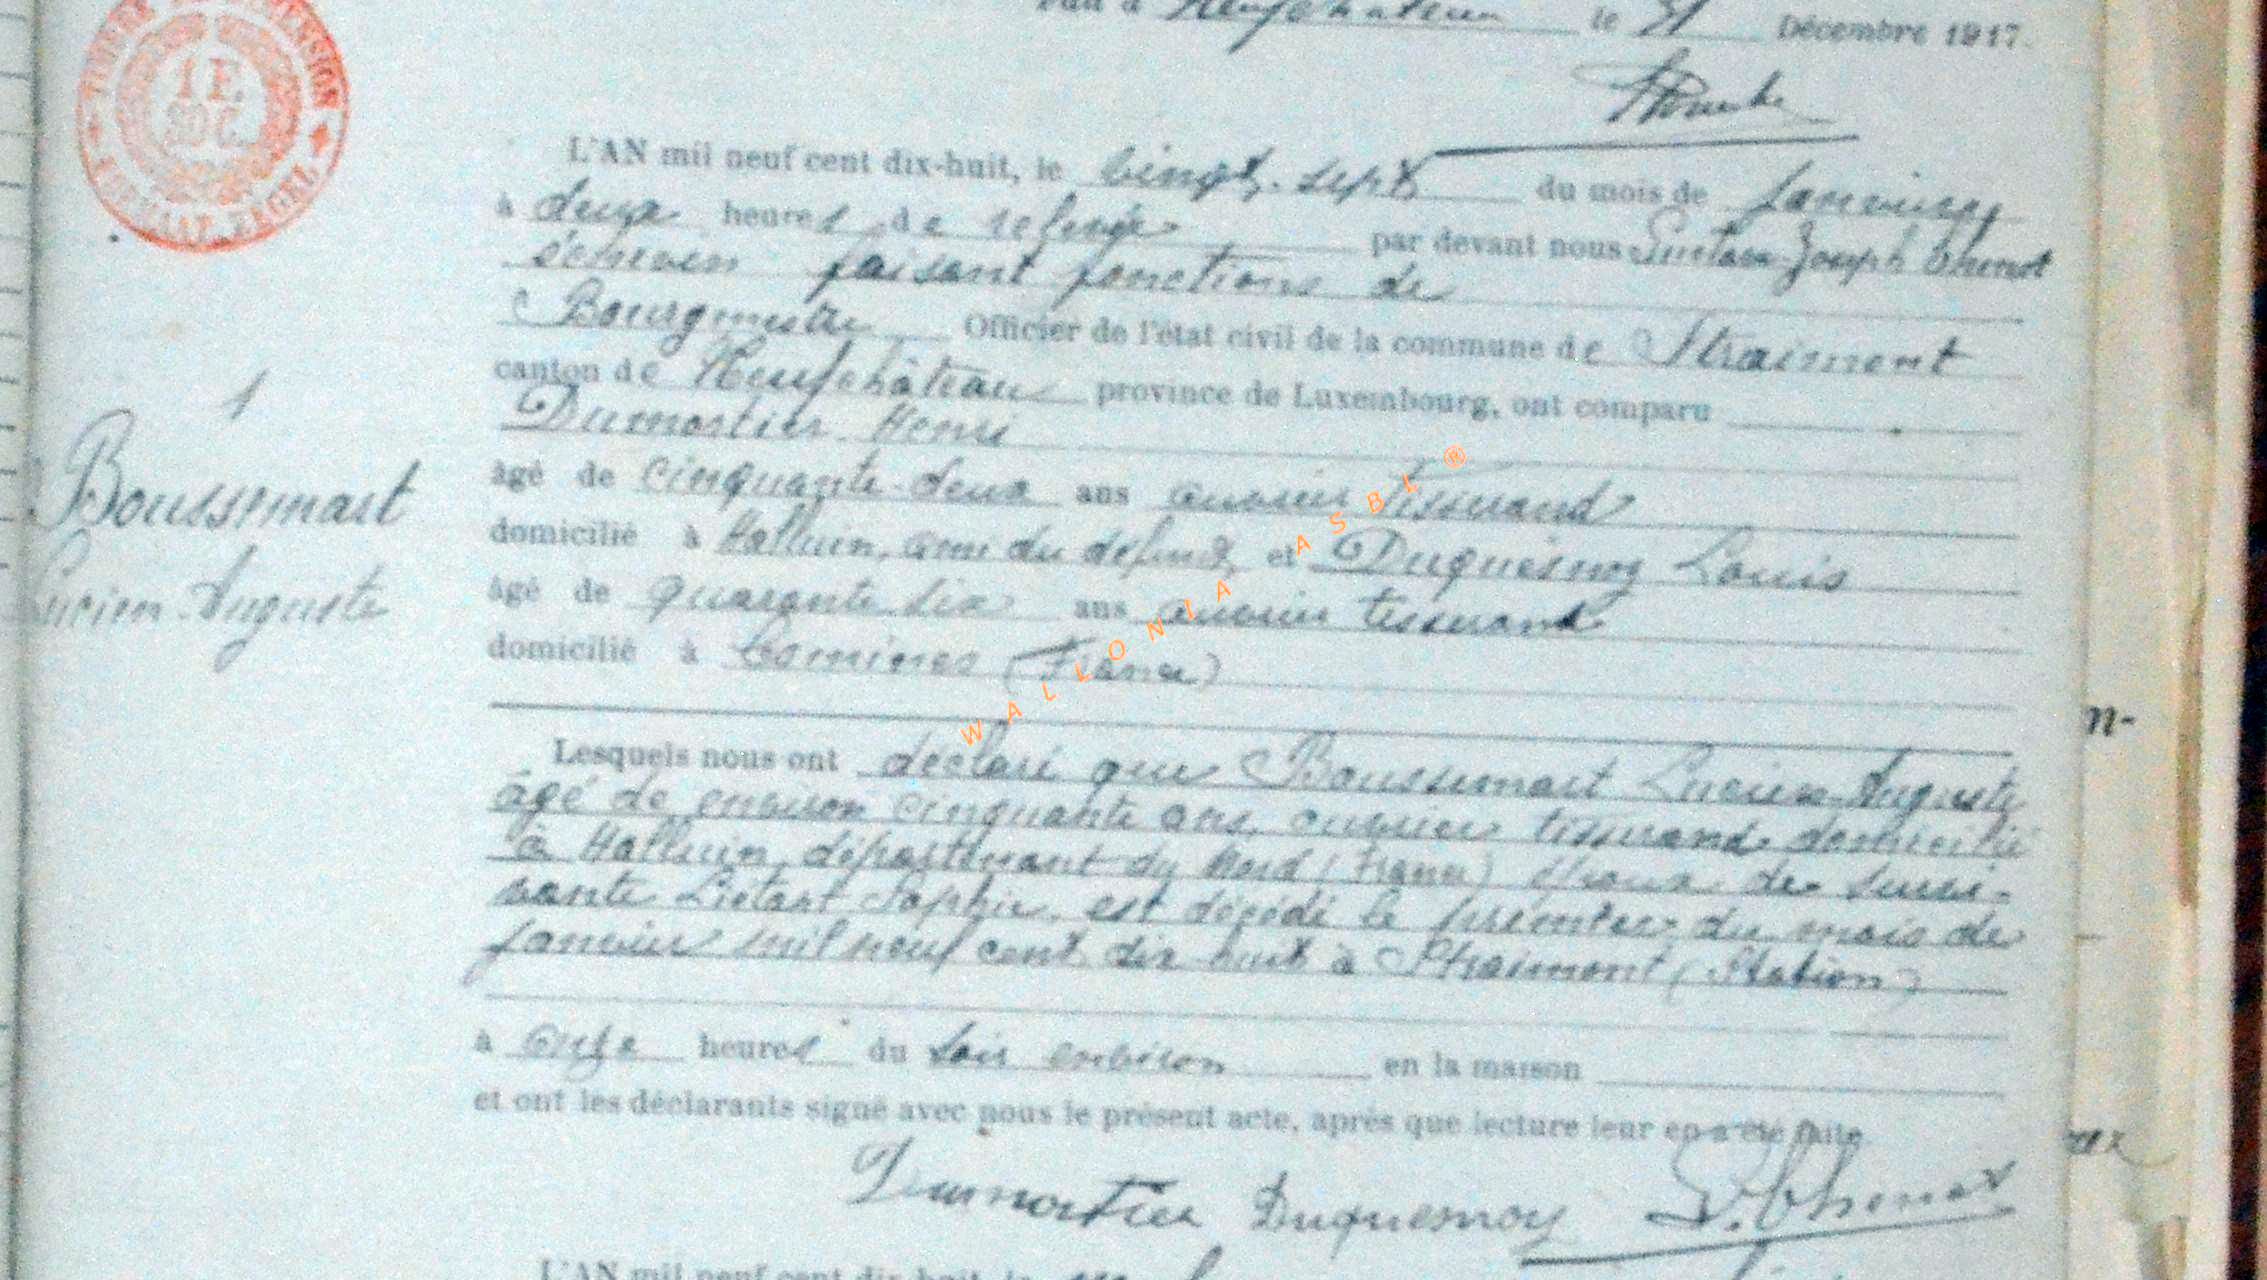 à Neufchâteau le 31 Décembre 1917.
1 F.
10 C.
L'AN mil neuf cent dix-huit, le vingt-sept du mois de Janvier
à deux heures de relevée par devant nous Gustave Joseph Thenot
échevin faisant fonctions de
Bourgmestre Officier de l'état civil de la commune de Straimont
canton de Neufchâteau province de Luxembourg, ont comparu
Dumortier Henri
âgé de cinquante-deux ans ouvrier tisserand
domicilié à Halluin, ami du défunt et Duquesnoy Louis
âgé de quarante six ans ouvrier tisserand
domicilié à Comines (France)
1
Boussemart
Lucien Auguste
Lesquels nous ont déclaré que Boussemart Lucien Auguste
âgé de environ cinquante ans, ouvrier tisserand domicilié
à Halluin, département du Nord (France) époux de survi-
vante Liétart Sophie, est décédé le premier du mois de
janvier mil neuf cent dix huit à Straimont (Station)
à onze heures du soir environ en la maison
et ont les déclarants signé avec nous le présent acte, après que lecture leur en a été faite
Dumortier Duquesnoy Thenot
L'AN mil neuf cent dix-huit, le
WALLONIA ASBL ®